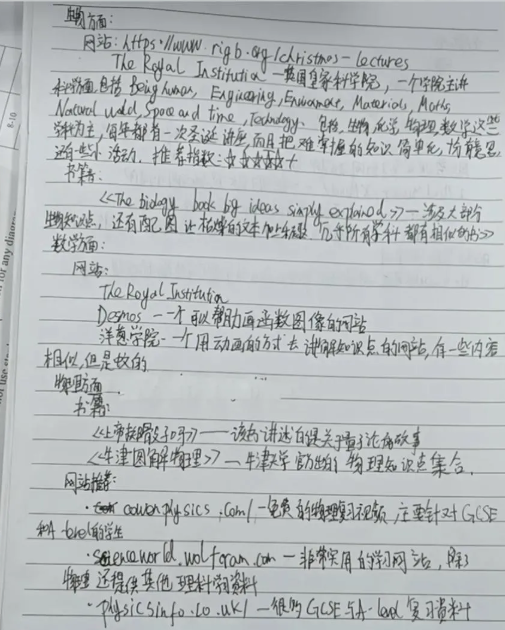 生物方面:
网站: https://www.rigb.org/christmas-lectures
The Royal Institution 一英国皇家科学院, 一个学院主讲
科学方面,包括 Being human, Engineering, Environment, Materials, Maths,
Natural world, Space and time, Technology. 包括 生物,化学,物理,数学这些
学科为主,每年都有一次圣诞讲座,而且把难掌握的知识简单化,传有意思,
还有些小活动. 推荐指数: ☆☆☆☆☆+
书籍:
<<The biology book big ideas simply explained>> 一 涉及大部分
生物知识点, 还有配图 让枯燥的文本 几乎所有学科都有相似的书>>
数学方面:
网站:
The Royal Institution
Desmos 一个可以帮助画函数图像的网站
洋葱学院 一个用动画的方式去讲解知识点的网站,有一些内容
相似,但是收的
物理方面
书籍:
<<上帝掷骰子吗>> —— 该书讲述的是关于量子论的故事
<<牛津图解物理>> 一 牛津大学官方出的 物理知识点集合.
网站推荐:
· cowenphysics.com/ 一免费的物理复习视频,主要针对GCSE
和A-level的学生
· scienceworld.wolfram.com 一 非常实用的学习网站, 除了
物理 还提供其他理科学习资料
· physicsinfo.co.uk/ 一很多GCSE与A-level复习资料
for any diagrams